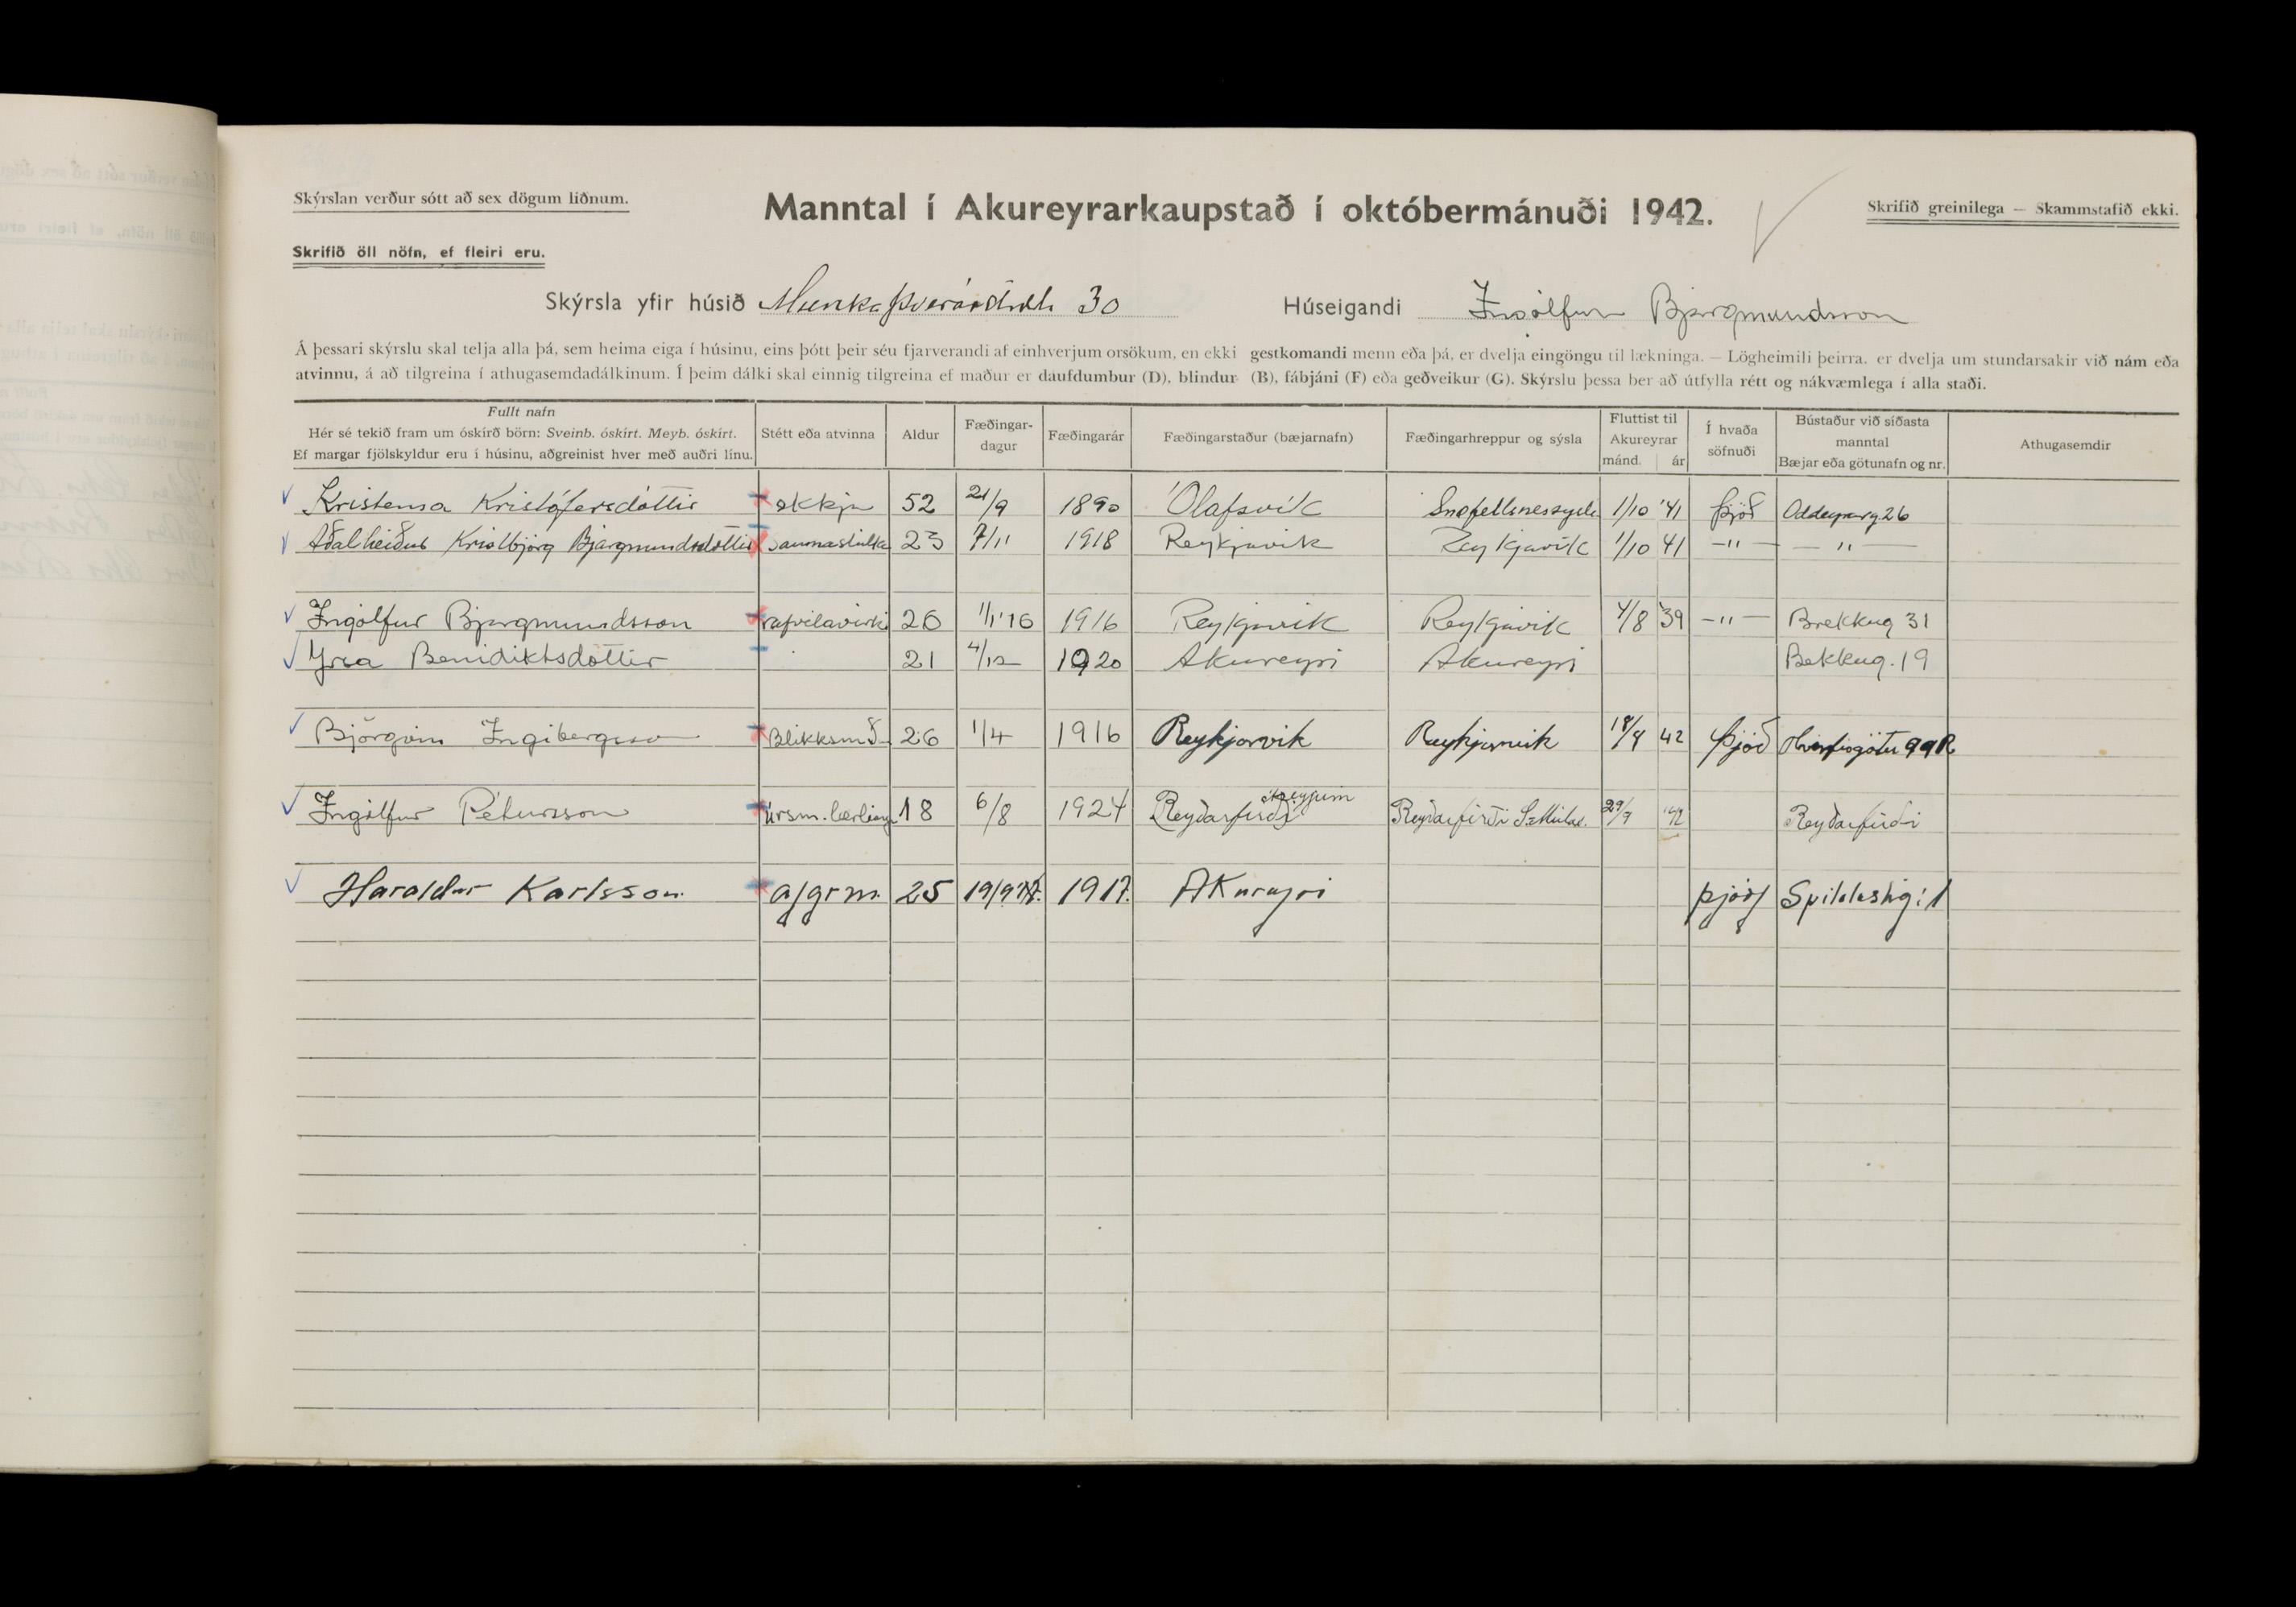 Skýrslan verður sótt að sex dögum liðnum.
Manntal í Akureyrarkaupstað í októbermánuði 1942.
Skrifið greinilega — Skammstafið ekki.
Skrifið öll nöfn, ef fleiri eru.
Skýrsla yfir húsið Munkaþverárstræti 30 Húseigandi Ingólfur Bjargmundsson
Á þessari skýrslu skal telja alla þá, sem heima eiga í húsinu, eins þótt þeir séu fjarverandi af einhverjum orsökum, en ekki gestkomandi menn eða þá, er dvelja eingöngu til lækninga. — Lögheimili þeirra, er dvelja um stundarsakir við nám eða
atvinnu, á að tilgreina í athugasemdadálkinum. Í þeim dálki skal einnig tilgreina ef maður er daufdumbur (D), blindur (B), fábjáni (F) eða geðveikur (G). Skýrslu þessa ber að útfylla rétt og nákvæmlega í alla staði.
Fullt nafn
Hér sé tekið fram um óskírð börn: Sveinb. óskírt. Meyb. óskírt.
Ef margar fjölskyldur eru í húsinu, aðgreinist hver með auðri línu.
Stétt eða atvinna
Aldur
Fæðingar-
dagur
Fæðingarár
Fæðingarstaður (bæjarnafn)
Fæðingarhreppur og sýsla
Fluttist til
Akureyrar
mánd. ár
Í hvaða
söfnuði
Bústaður við síðasta
manntal
Bæjar eða götunafn og nr.
Athugasemdir
Kristensa Kristófersdóttir ekkja 52 21/9 1890 Ólafsvík Snæfellsnessýslu 1/10 '41 þjóð Oddeyrarg 26
Aðalheiður Kristbjörg Bjargmundsdóttir saumastúlka 23 7/11 1918 Reykjavik Reykjavík 1/10 41 —"— —"—
Ingólfur Bjargmundsson rafvélavirki 26 1/1'16 1916 Reykjavik Reykjavík 4/8 '39 —"— Brekkug 31
Yrsa Benidiktsdóttir 21 4/12 1920 Akureyri Akureyri Bekkug. 19
Björgvin Ingibergsso Blikksmið 26 1/4 1916 Reykjavik Reykjavik 18/9 42 Þjóð Hverfisgötu 99 R
Ingólfur Pétursson Úrsm. lærlingu 18 6/8 1924 Reyðarfirði Reyðarfirði S-Múlas. 29/9 '42 Reyðarfirði
Haraldur Karlsson afgrm. 25 19/9'17. 1917. Akureyri þjóðf Spítalastíg: 1